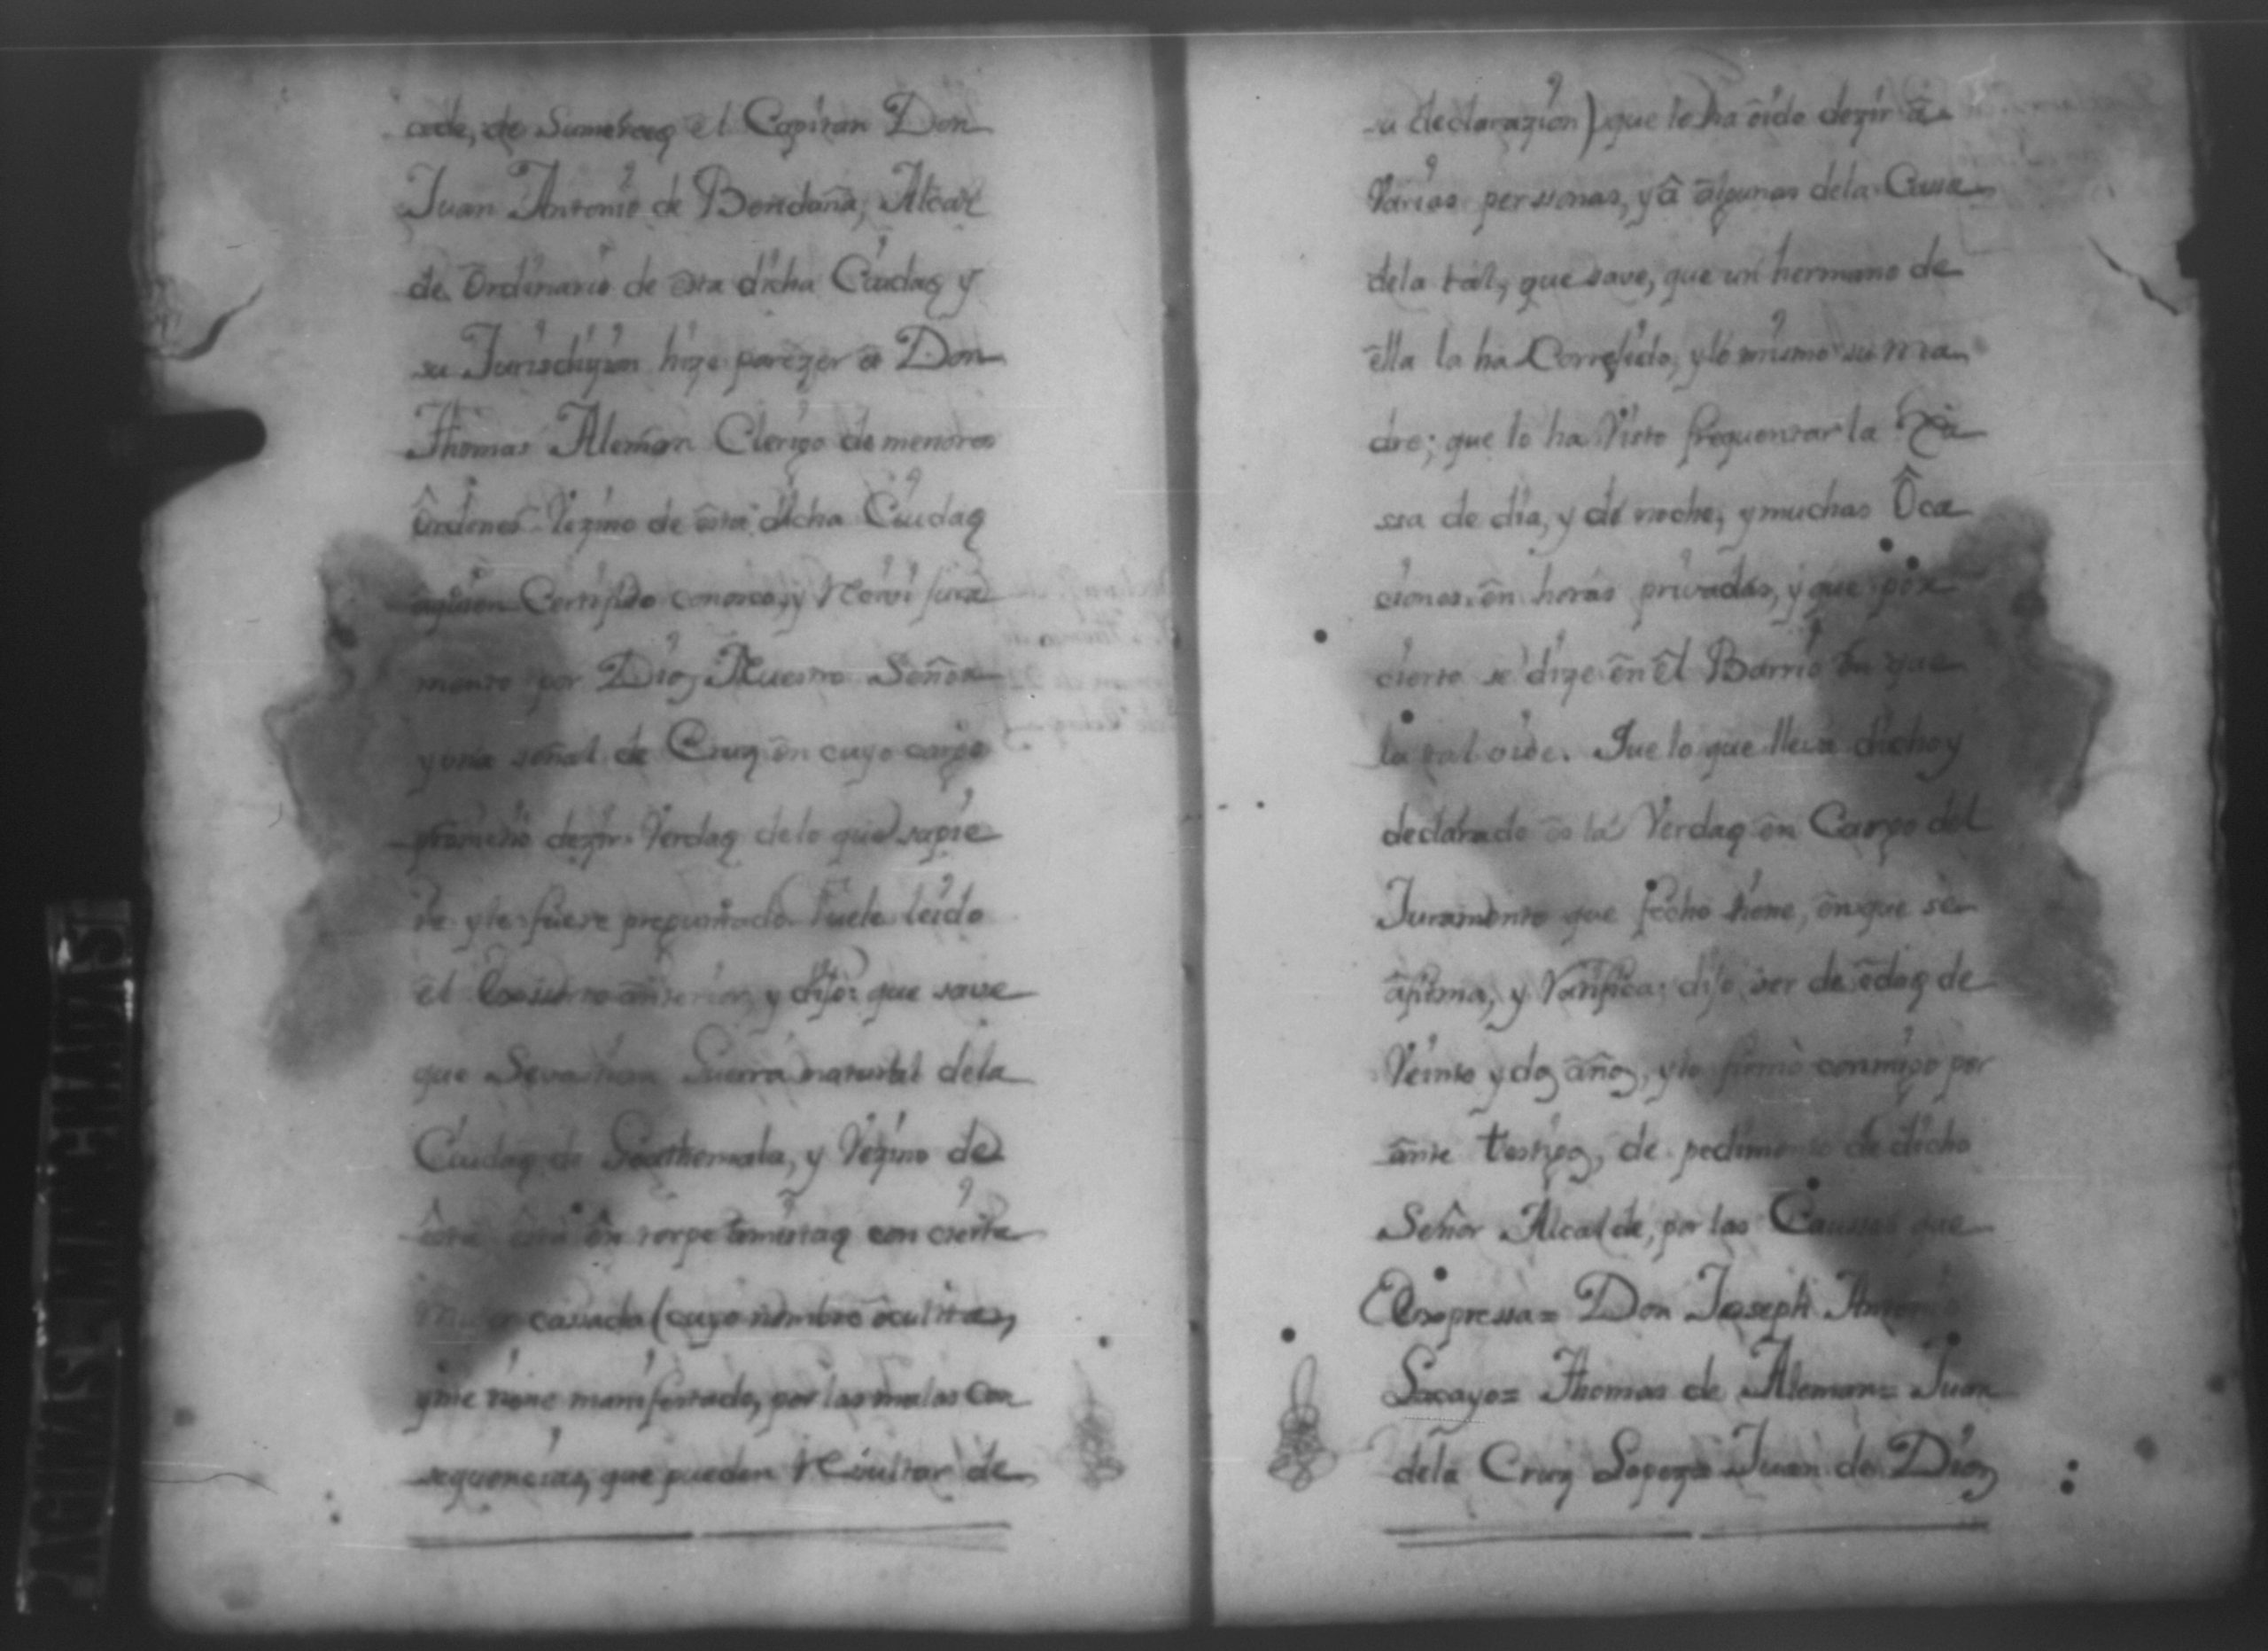 de, de Sumebzeg el Capitan Don
Juan Antonio de Bendaña, Alcal
de Ordinario de ésta dicha Ciudag y
su Jurisdizion hize parezer â Don
Thomas Aleman Clerigo de menores
Ôrdenes Vezino de ésta dicha Ciudag
aquien Certifico conosco, y Reciví jura
mento por Dios Nuestro Señor
y una señal de Cruz ên cuyo cargo
prometio dezir Verdag delo que supie
re y le fuere preguntado. Fuele leido
êl Escripto anterior, y dijo: que save
que Sevastian Guerra natural dela
Ciudag de Goathemala, y Vezino de
êsta êsta ên torpe âmistag con cierta
Muger cassada (cuyo nombre ôculta,
y me tiene manifestado, por las malas con
sequencias, que pueden Resultar de
su declarazion) que lo ha ôido dezir â
Varias perssonas, y â âlgunas dela Cassa
dela tal, que save, que un hermano de
êlla la ha Correjido, y lô mismo su ma
dre; que lo ha Visto frequentar la Ca
ssa de dia, y de noche, y muchas Ôca
ciones, ên horas privadas, y que por
cierto se dize ên êl Barrio ên que
la tal vive. Que lo que lleva dicho y
declarado es la Verdag ên Cargo del
Juramento que fecho tiene, ên que se
âfirma, y Ratifica: dijo ser de êdag de
Veinte y dos âños, y lo firmò conmigo por
ânte testigos, de pedimento de dicho
Señor Alcalde, por las Caussas que
Expressa= Don Joseph Antonio
Lacayo= Thomas de Aleman= Juan
dela Cruz Lopez= Juan de Dios